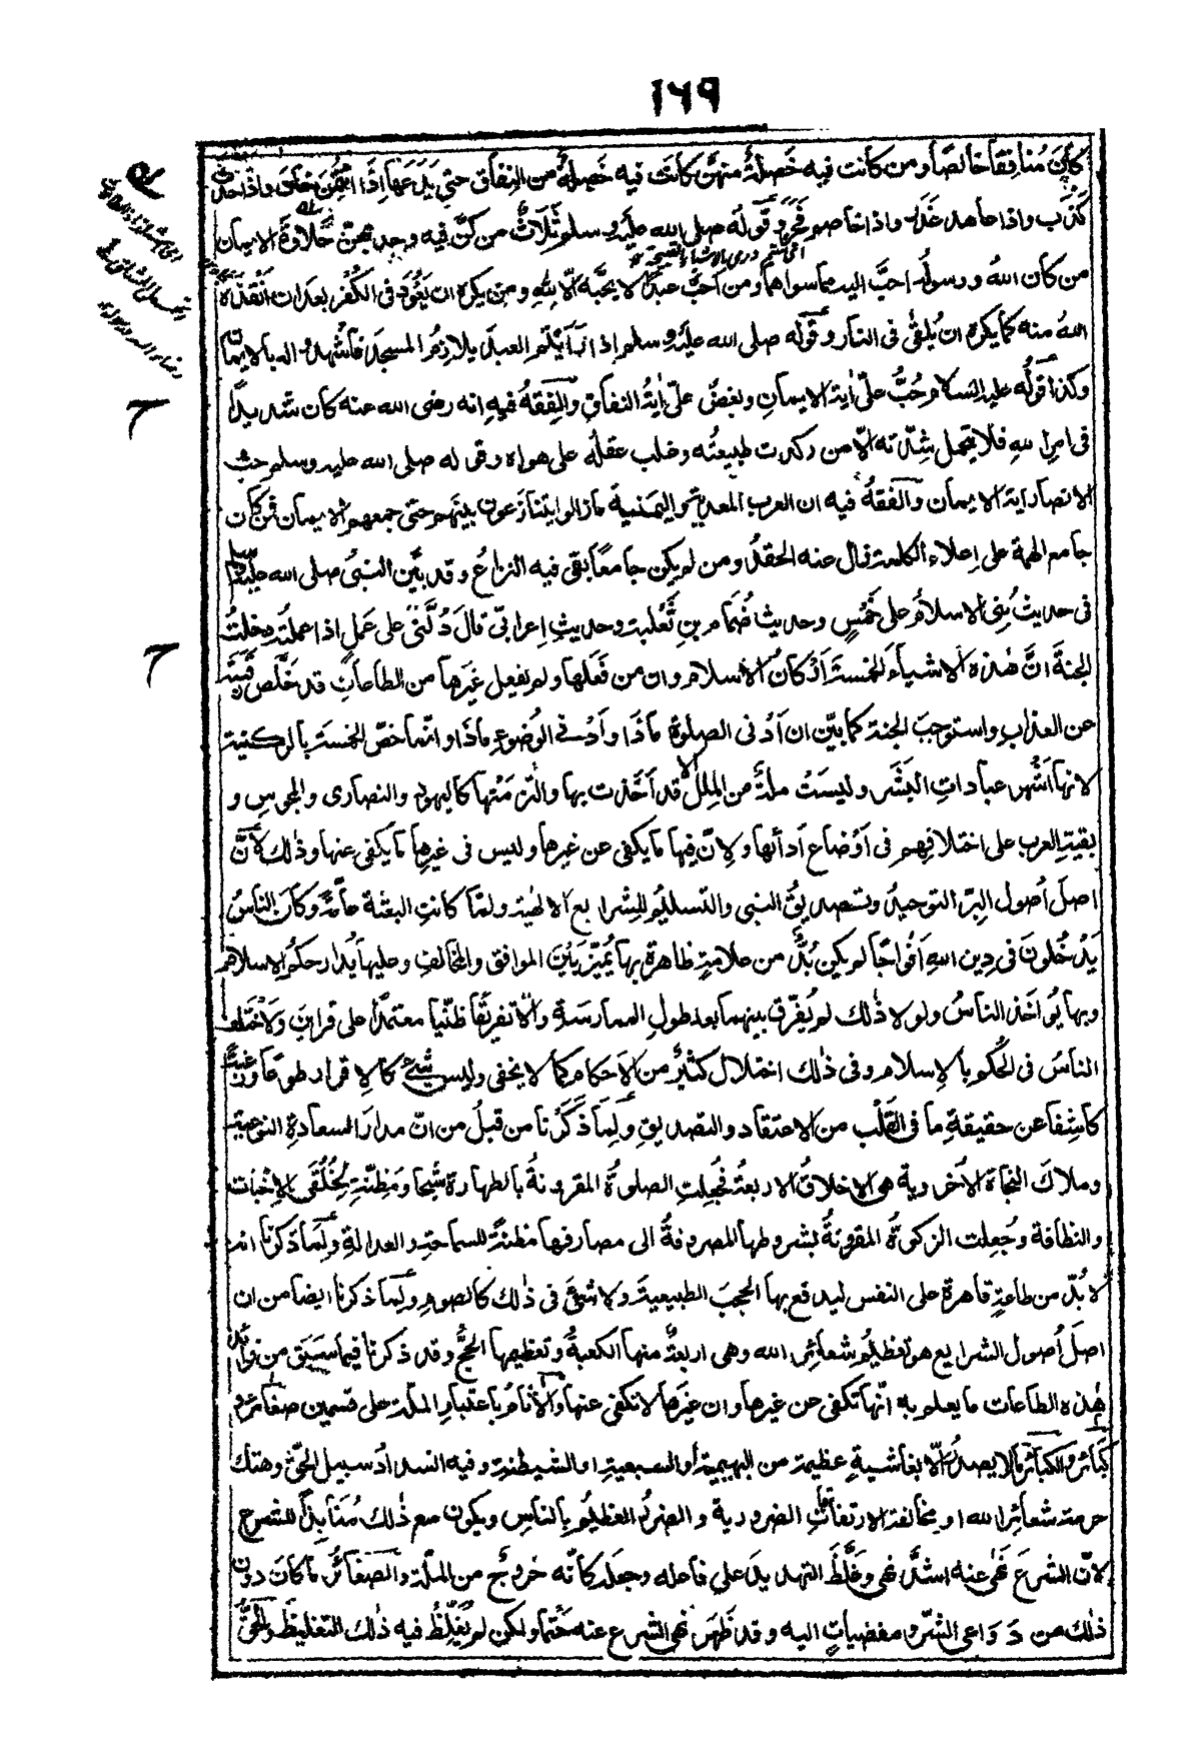 ١٦٩
كان منافقا خالصا ومن كانت فيه خَصلة منهن كانت فيه خَصلة من النفاق حتى يدعها اذا ائتمن خان واذا حدث
كذب واذا عاهد غدر واذا خاصم فجر وقوله صلى الله عليه وسلم ثلاث من كن فيه وجد بهن حلاوة الايمان
من كان الله ورسوله احب اليه مما سواهما ومن احب عبدا لا يحبه الا لله ومن يكره ان يعود فى الكفر بعد ان انقذه
الله منه كما يكره ان يلقى فى النار وقوله صلى الله عليه وسلم اذا رأيتم العبد يلازم المسجد فاشهدوا له بالايمان
وكذا قوله عليه السلام حُبُّ علىّ اٰية الايمان وبغض علىّ اٰية النفاق والفقه فيه انه رضى الله عنه كان شديدًا
فى امر الله فلا يتحمل شدّته الّا من ركدت طبيعته وغلب عقله على هواه وقوله صلى الله عليه وسلم حب
الانصار اية الايمان والفقه فيه ان العرب المعدية واليمنية مازالوا يتنازعون بينهم حتى جمعهم الايمان فمن كان
جامع الهمة على اعلاء الكلمة زال عنه الحقد ومن لم يكن جامعا بقى فيه النزاع وقد بيّن النبى صلى الله عليه وسلم
فى حديث بنى الاسلام على خمس وحديث ضمام بن ثعلبة وحديث اعرابى قال دُلَّنى على عمل اذا عملته دخلت
الجنة انّ هٰذه الاشياء الخمسة اركان الاسلام وان من فعلها ولم يفعل غيرها من الطاعات قد خلّص رقبته
عن العذاب واستوجب الجنة كما بيّن ان ادنى الصلوة ماذا وادنى الوضوء ماذا وانّما خصّ الخمسة بالركنية
لانها اشهر عبادات البشر وليست ملة من الملل الا قد اخذت بها والتزمتها كاليهود والنصارى والمجوس و
بقية العرب على اختلافهم فى اوضاع ادائها ولان فيها ما يكفى عن غيرها وليس فى غيرها ما يكفى عنها وذٰلك لان
اصل اصول البر التوحيد وتصديق النبى والتسليم للشرائع الالٰهية ولما كانت البعثة عامة وكان الناس
يدخلون فى دين الله افواجا لم يكن بُدٌّ من علامة ظاهرة بها يُميّز بين الموافق والمخالف وعليها يُدار حكم الاسلام
وبها يؤاخذ الناس ولولا ذٰلك لم يُفرّق بينهما بعد طول الممارسة والا تفريقا ظنّيا معتمدا على قراين ولاختلف
الناس فى الحكم بالاسلام وفى ذٰلك اختلال كثير من الاحكام كما لا يخفى وليس شىء كالاقرار طوعا ورغبةً
كاشفا عن حقيقة ما فى القلب من الاعتقاد والتصديق ولما ذكرنا من قبل من ان مدار السعادة النوعية
وملاك النجاة الاخروية هى الاخلاق الاربعة فجعلت الصلوة المقرونة بالطهارة شبحا ومظنة لخلقى الاخبات
والنظافة وجعلت الزكوة المقرونة بشروطها المصروفة الى مصارفها مظنةً للسماحة والعدالة ولما ذكرنا انه
لا بُدّ من طاعة قاهرة على النفس ليدفع بها الحجب الطبيعية ولا شىء فى ذٰلك كالصوم ولما ذكرنا ايضا من ان
اصل اصول الشرايع هو تعظيم شعائر الله وهى اربعة منها الكعبة وتعظيمها الحج وقد ذكرنا فيما سبق من فوائد
هٰذه الطاعات ما يعلم به انّها تكفى عن غيرها وان غيرها لا تكفى عنها والاثام باعتبار الملة على قسمين صغائر و
كبائر والكبائر ما لا يصدر الا بغاشية عظيمة من البهيمية او السبعية او الشيطنة وفيه انسداد سبيل الحق وهتك
حرمة شعائر الله او مخالفة الارتفاقات الضرورية والضرر العظيم بالناس ويكون مع ذٰلك منابذا للشرع
لانّ الشرع نهى عنه اشدّ نهى وغلّظ التهديد على فاعله وجعله كانّه خروج من الملة والصغائر ما كان دون
ذٰلك من دواعى الشر ومفضيات اليه وقد ظهر نهى الشرع عنه حتما ولكن لم يُغلّظ فيه ذٰلك التغليظ والحق